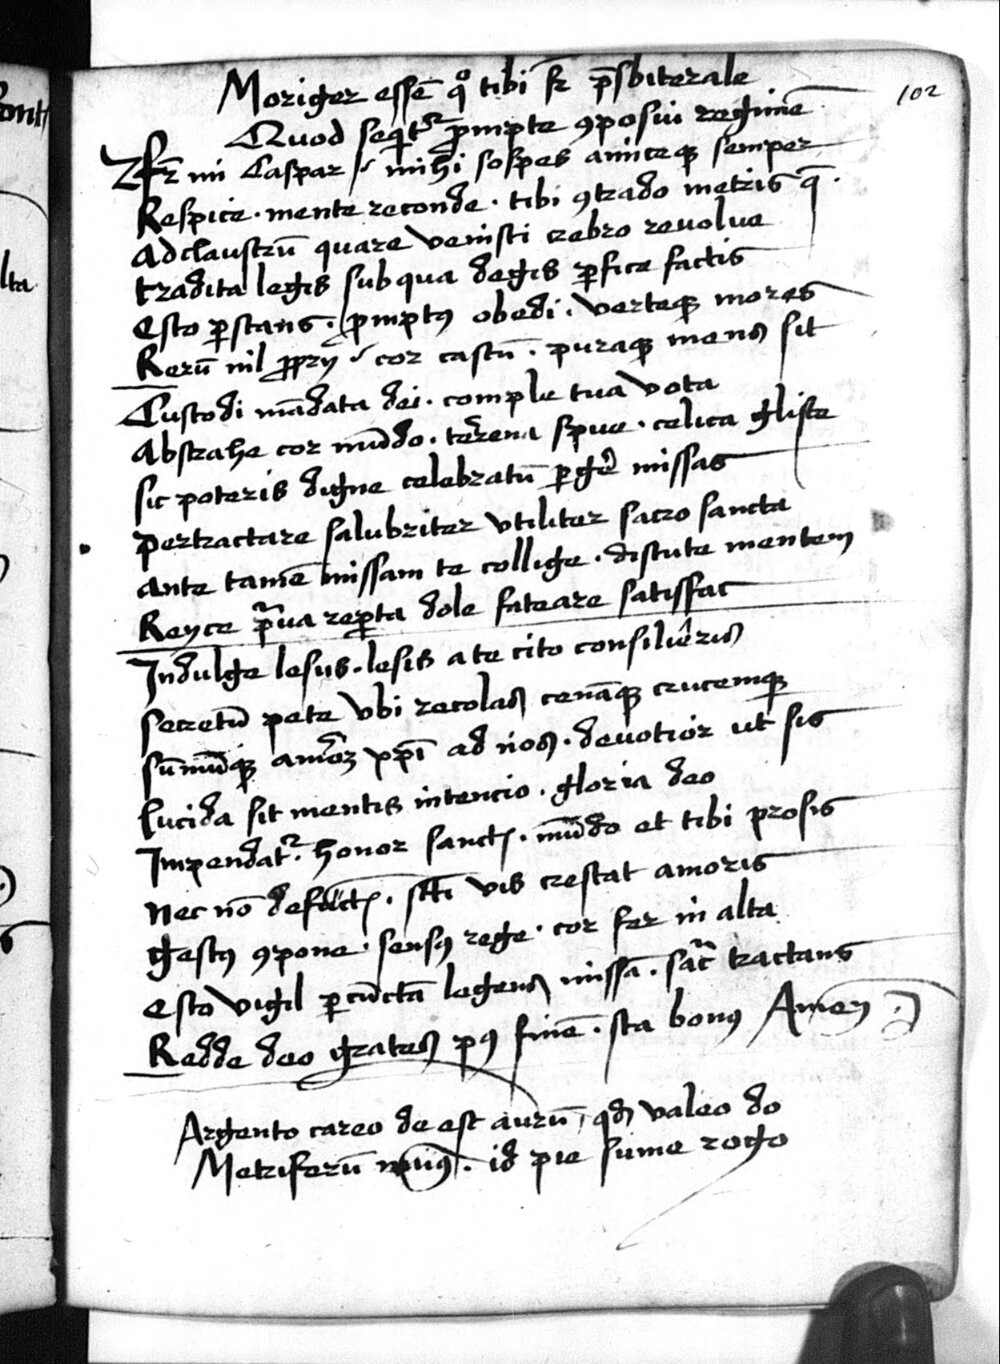 102
Moriger essē qͦ tibi fr̄ p̄sbiterale
Quod seqͥtr̄ ꝓmpte ꝯposui regimē
fr̄ mi Caspar / mihi sospes amiceqꝫ semper
Respice · mente reconde · tibi ꝯtrado metris q̄ ·
Ad claustrū quare venisti crebro reuolue
tradita legis sub qua degis ꝑfice factis
Esto ꝑstans · ꝓmptꝰ obedi · verteqꝫ mores
Rerū nil ꝓpry / cor castū · puraqꝫ mens sit
Custodi mādata dei · comple tua vota
Abstrahe cor mūdo · terrena spue · celica gliste
sic poteris digne celebratū ꝑgere missas
pertractare salubriter vtiliter sacro sancta
ante tamē missam te collige · discute mentem
Reyce praua reꝑta dole fateare satisffac
Indulge lesus · lesis a te cito consilieris
secretū pete vbi recolas cenāqꝫ crucemqꝫ
sūmūqꝫ amorē xp̄i ad nos · deuotior ut sis
lucida sit mentis intencio · gloria deo
Impendatr̄ · honor sanctis · mūdo et tibi prosis
Nec nō defūctis · vis crescat amoris
gestꝰ ꝯpone · sensꝰ rege · cor fer in alta
esto vigil ꝑ cūctā legens missā · sacra tractans
Redde deo grates pꝰ finē · sta bonꝰ Amen
Argento careo de est aurū / qd valeo do
Metriferū munꝰ · id pie sume rogo